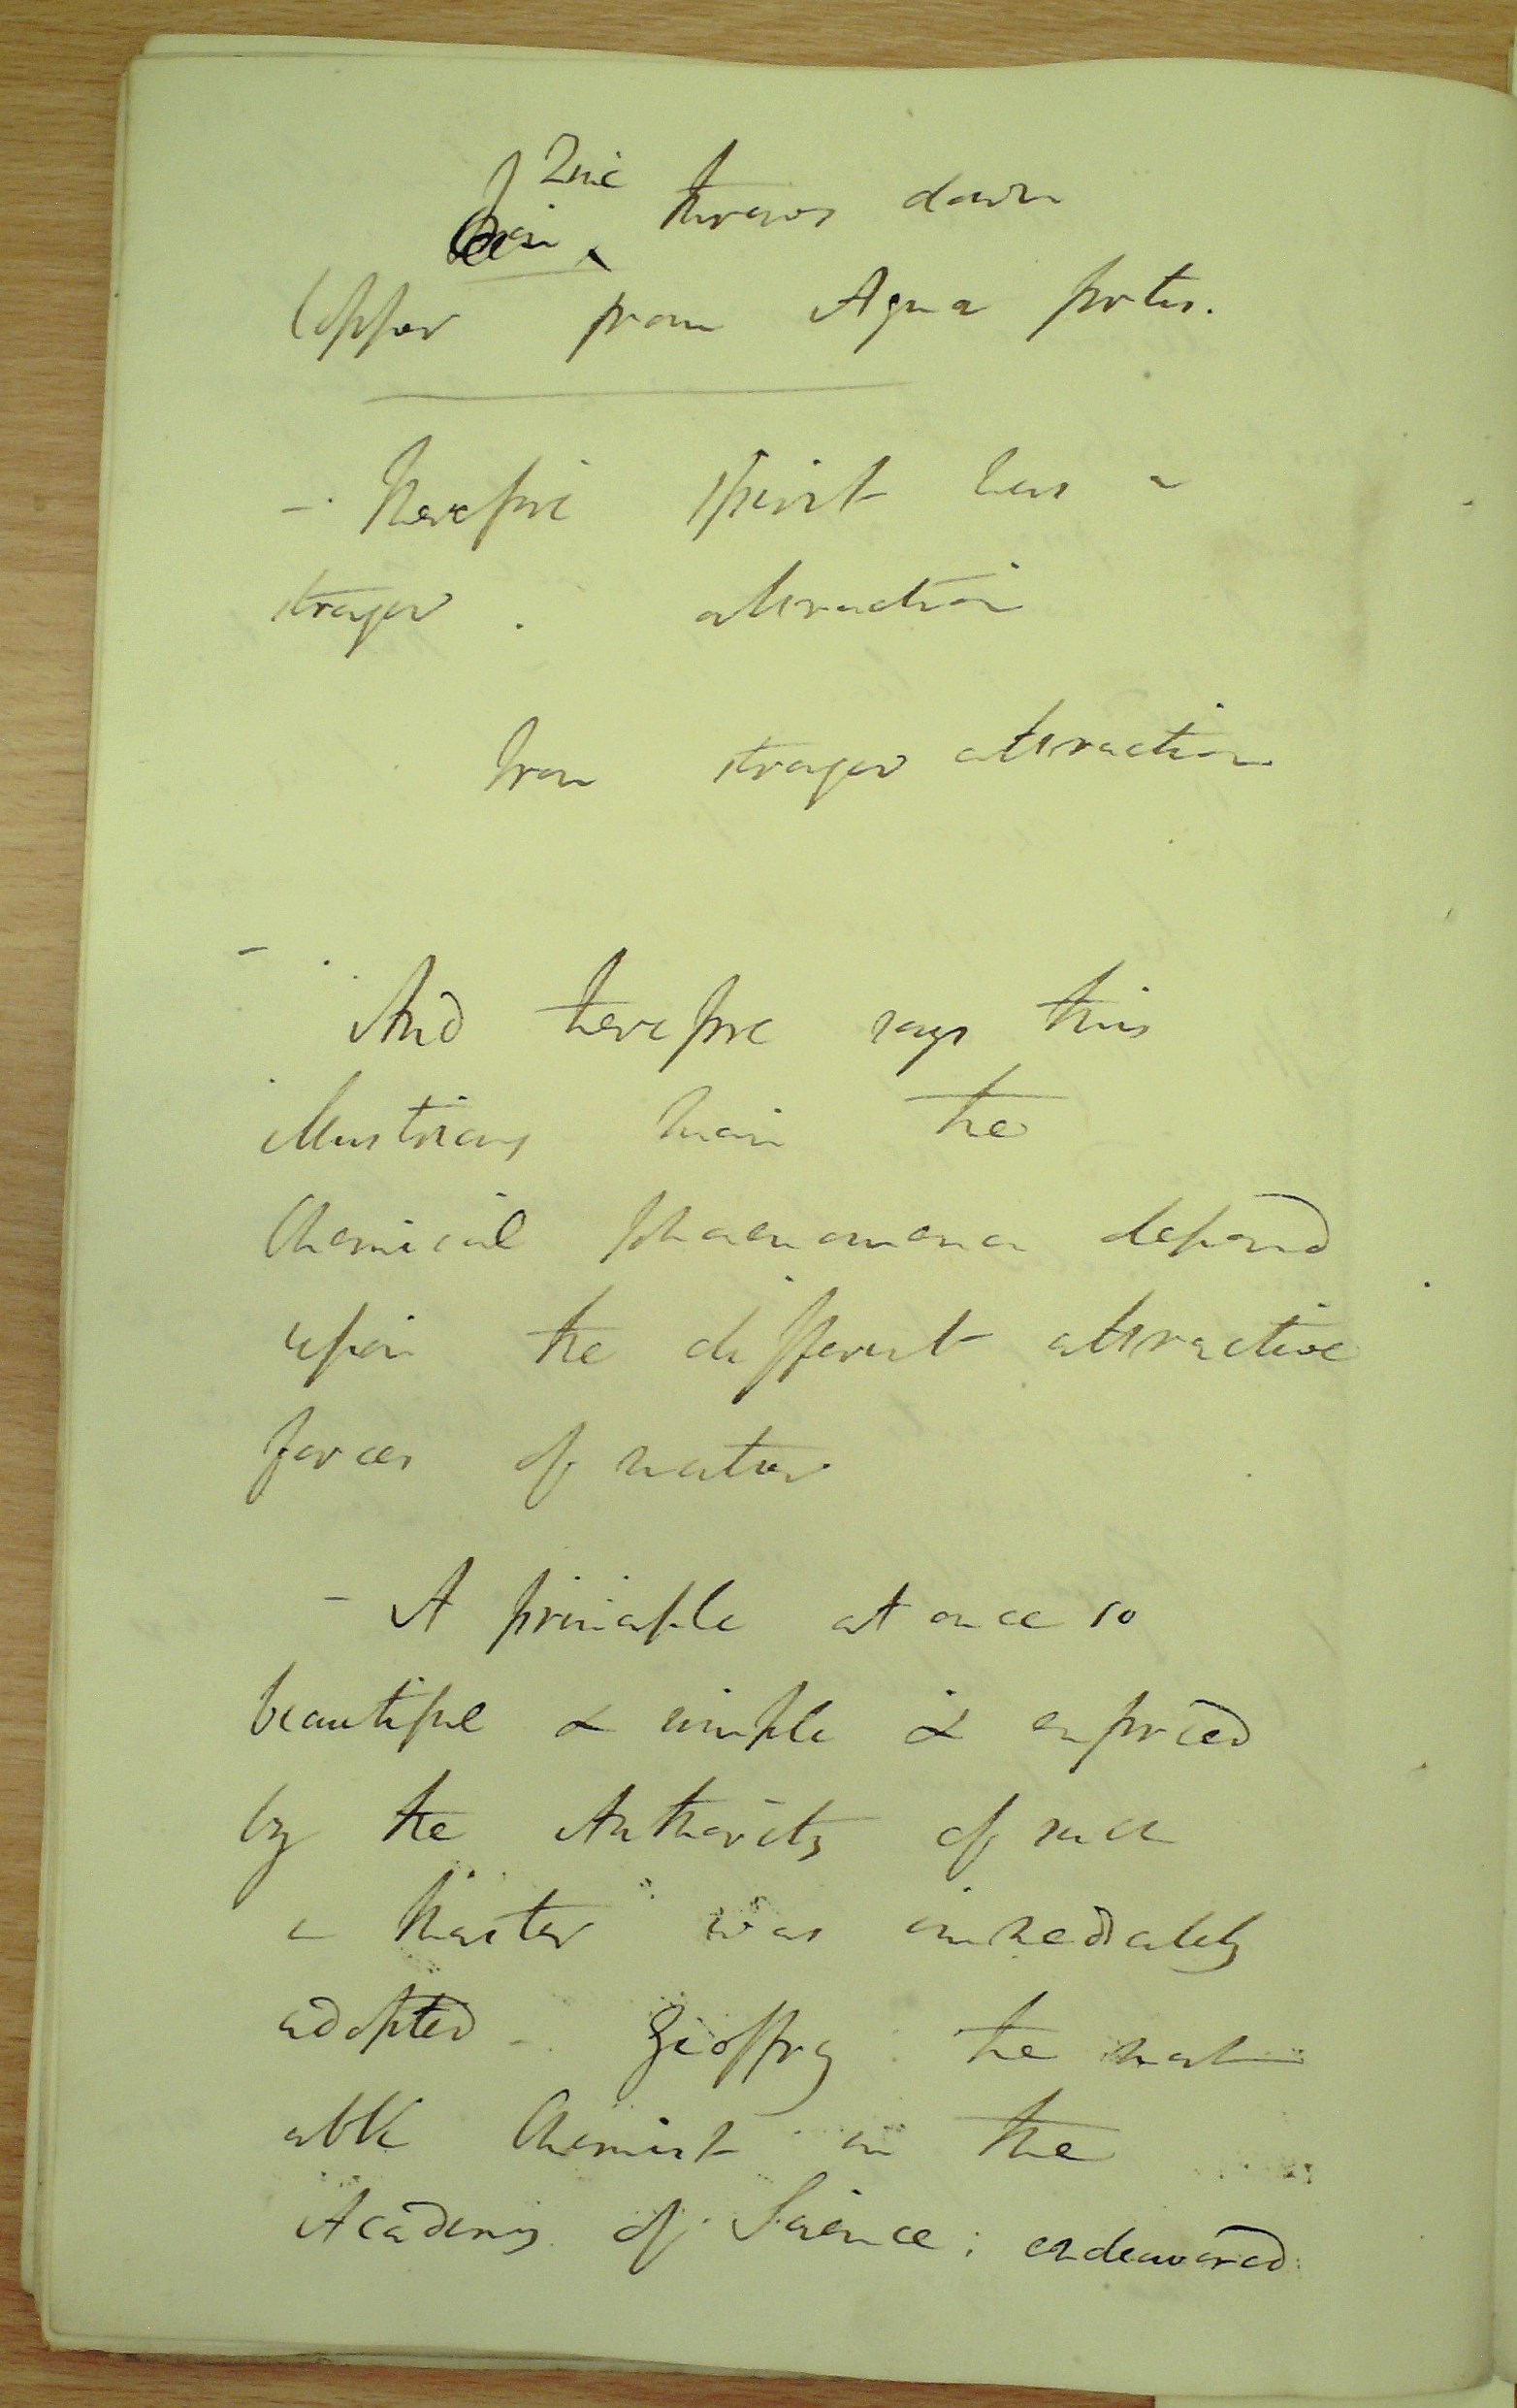 Zinc throws down
Copper from Aqua fortis.
- Therefore spirit has a
stronger attraction
Iron stronger attraction
- And therefore says this
illustrious man the
Chemical phaenomena depend
upon the different attractive
forces of matter
- A principle at once so
beautiful & simple & enforced
by the Authority of such
a Master was immediately
adopted - Geoffry the most
able Chemist in the
Academy of Science; endeavored